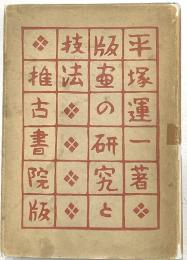 平塚運一著❖
版画の研究と
技法❖❖❖❖
❖椎古書院版